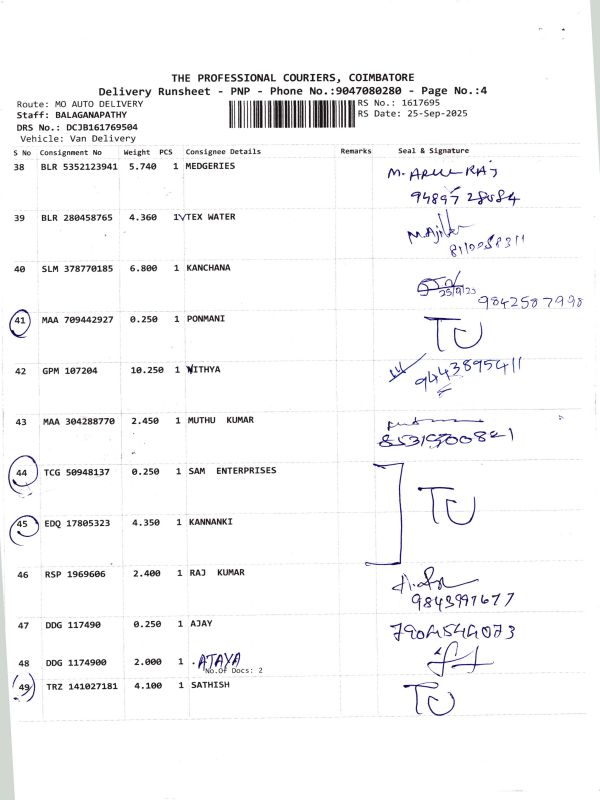 THE PROFESSIONAL COURIERS, COIMBATORE
Delivery Runsheet - PNP - Phone No.:9047080280 - Page No.:4
Route: MO AUTO DELIVERY RS No.: 1617695
Staff: BALAGANAPATHY RS Date: 25-Sep-2025
DRS No.: DCJB161769504
Vehicle: Van Delivery
S No Consignment No Weight PCS Consignee Details Remarks Seal & Signature
38 BLR 5352123941 5.740 1 MEDGERIES M. ARUL RAJ
94895 28084
39 BLR 280458765 4.360 1 TEX WATER
40 SLM 378770185 6.800 1 KANCHANA
9842587998
41 MAA 709442927 0.250 1 PONMANI TU
42 GPM 107204 10.250 1 VITHYA
9443895411
43 MAA 304288770 2.450 1 MUTHU KUMAR
44 TCG 50948137 0.250 1 SAM ENTERPRISES TU
45 EDQ 17805323 4.350 1 KANNANKI
46 RSP 1969606 2.400 1 RAJ KUMAR
9843991677
47 DDG 117490 0.250 1 AJAY 7904544073
48 DDG 1174900 2.000 1 . ATAYA
No.Of Docs: 2
49 TRZ 141027181 4.100 1 SATHISH TU